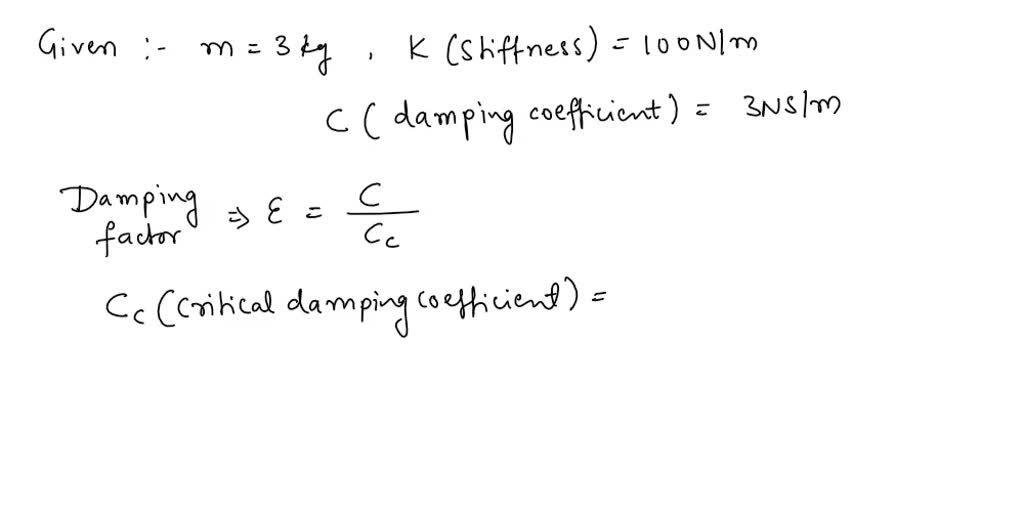 Given :- m = 3 kg , K (Stiffness) = 100N/m
C ( damping coefficient) = 3NS/m
Damping factor ⇒ ε = C / Cc
Cc (Critical damping coefficient) =